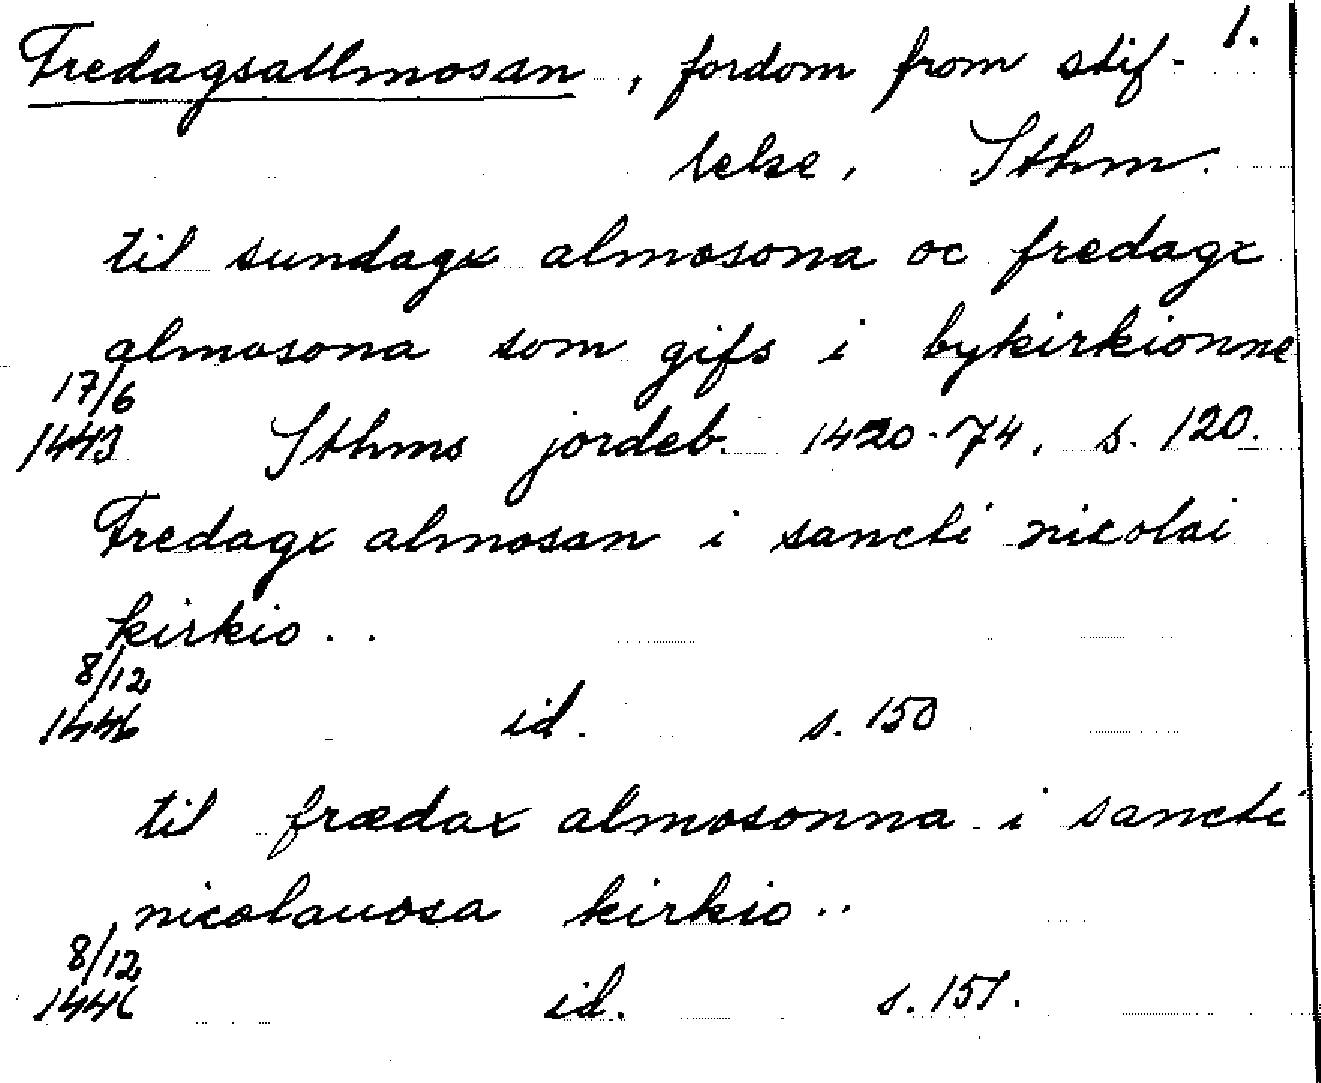 1.
Fredagsallmosan, fordom from stif-
telse, Sthm.
til sundagx almosona oc fredagx
almosona som gifs i bykirkionne
17/6
1443 Sthms jordeb. 1420-74, s. 120.
Fredagx almosan i sancti nicolai
kirkio..
8/12
1446 id. s. 150
til frædax almosonna i sancti
nicolauosa kirkio..
8/12
1446 id. s. 151.